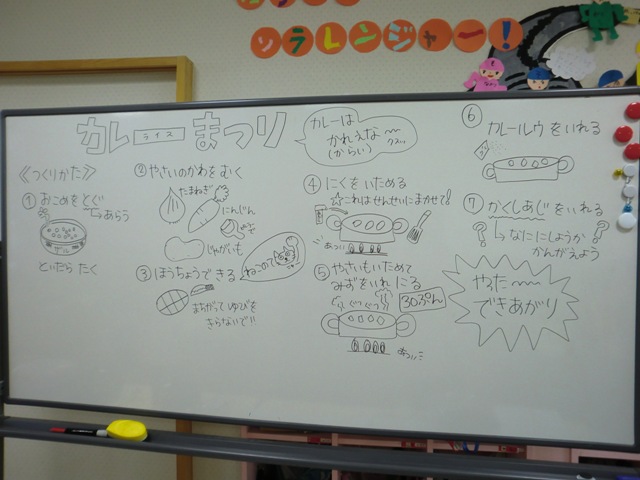 ソラレンジャー!
カレーライスまつり
カレーは
かれぇな〜
(からい)
≪つくりかた≫
①おこめをとぐ
→あらう
ザル
といだら たく
②やさいのかわをむく
たまねぎ
にんじん
じゃがいも
③ほうちょうできる
ねこのて
まちがってゆびを
きらないで!!
④にくをいためる
☆これはせんせいにまかせて!
あつい
⑤やさいもいためて
みずをいれにる
ぐつぐつ
30ぷん
あつい
⑥カレールウをいれる
⑦かくしあじをいれる
→なににしようか
かんがえよう
やったー〜
できあがり